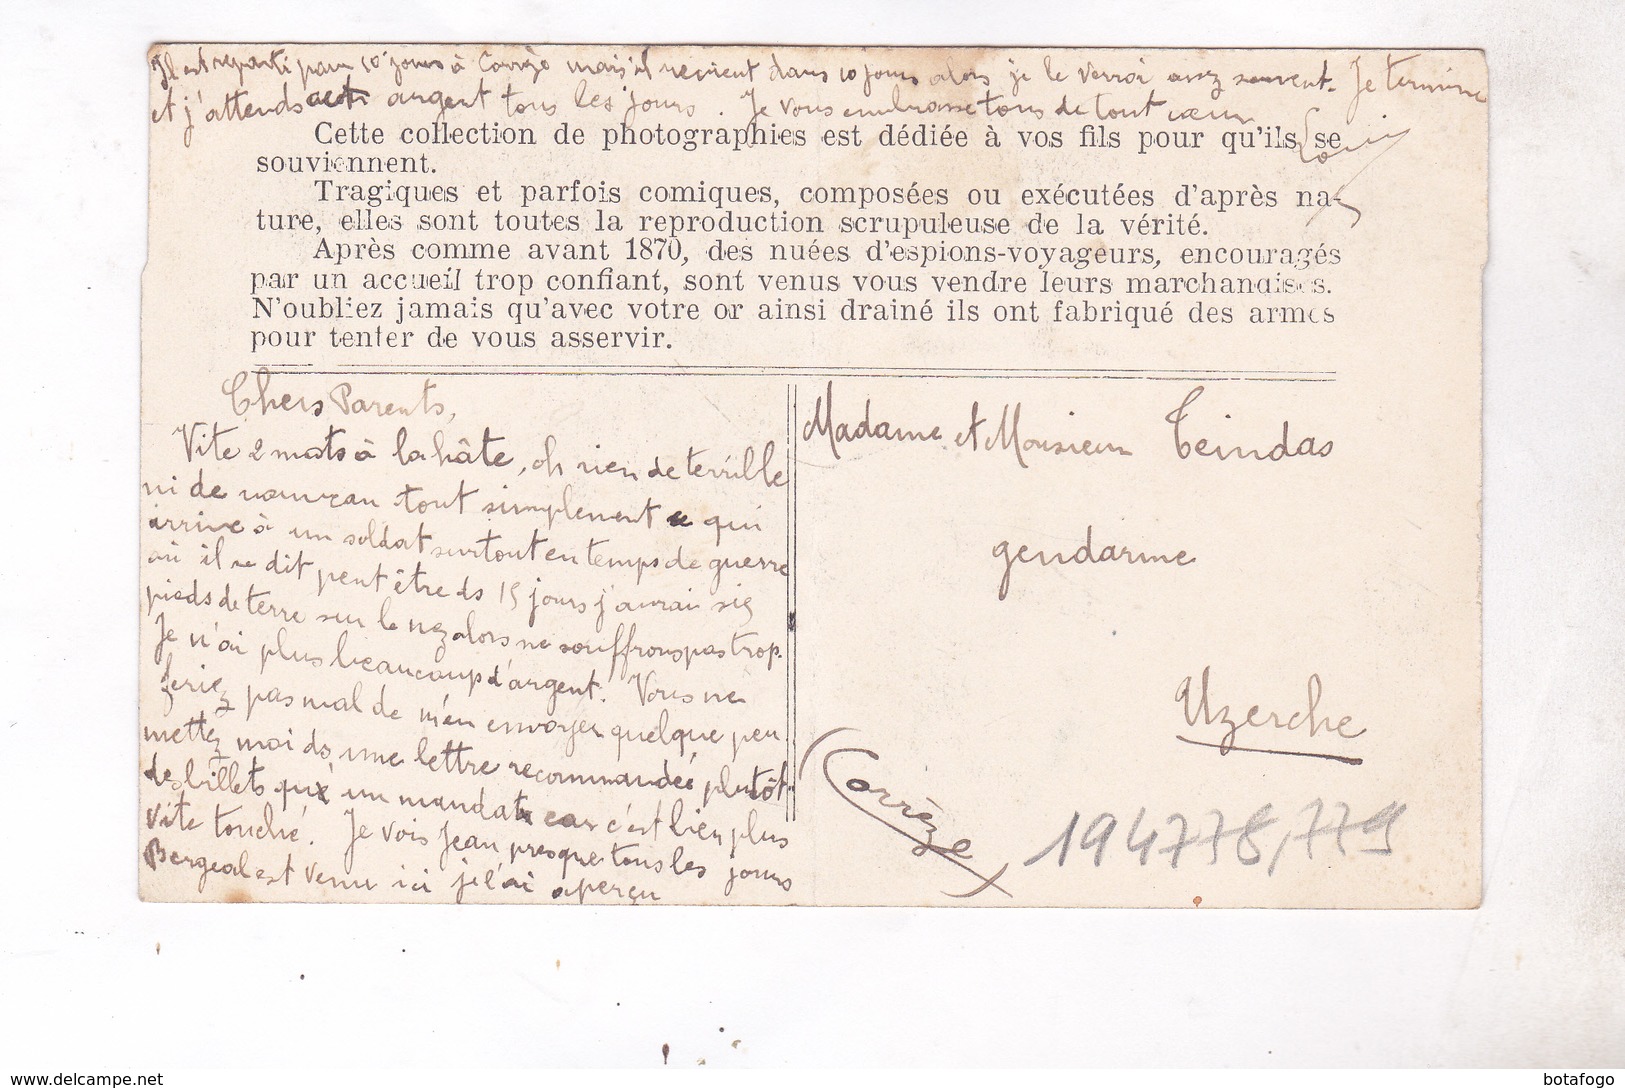 Il est reparti pour 10 jours à Corrèze mais il revient dans 10 jours alors je le verrai assez souvent. Je termine
et j'attends argent tous les jours. Je vous embrasse tous de tout cœur
Louis
Cette collection de photographies est dédiée à vos fils pour qu'ils se
souviennent.
Tragiques et parfois comiques, composées ou exécutées d'après na-
ture, elles sont toutes la reproduction scrupuleuse de la vérité.
Après comme avant 1870, des nuées d'espions-voyageurs, encouragés
par un accueil trop confiant, sont venus vous vendre leurs marchandises.
N'oubliez jamais qu'avec votre or ainsi drainé ils ont fabriqué des armes
pour tenter de vous asservir.
Chers Parents,
Vite 2 mots à la hâte, oh rien de terrible
ni de nouveau tout simplement ce qui
arrive à un soldat surtout en temps de guerre
où il se dit peut être ds 15 jours j'aurai six
pieds de terre sur le nez alors ne souffrons pas trop.
Je n'ai plus beaucoup d'argent. Vous ne
feriez pas mal de m'en envoyer quelque peu
mettez moi ds une lettre recommandée plutôt
des billets qu'à un mandat car c'est bien plus
vite touché. Je vois Jean presque tous les jours
Bergeal est venu ici je l'ai aperçu
Madame et Monsieur Teindas
gendarme
Uzerche
(Corrèze)
194778,779
https://www.delcampe.net
botafogo